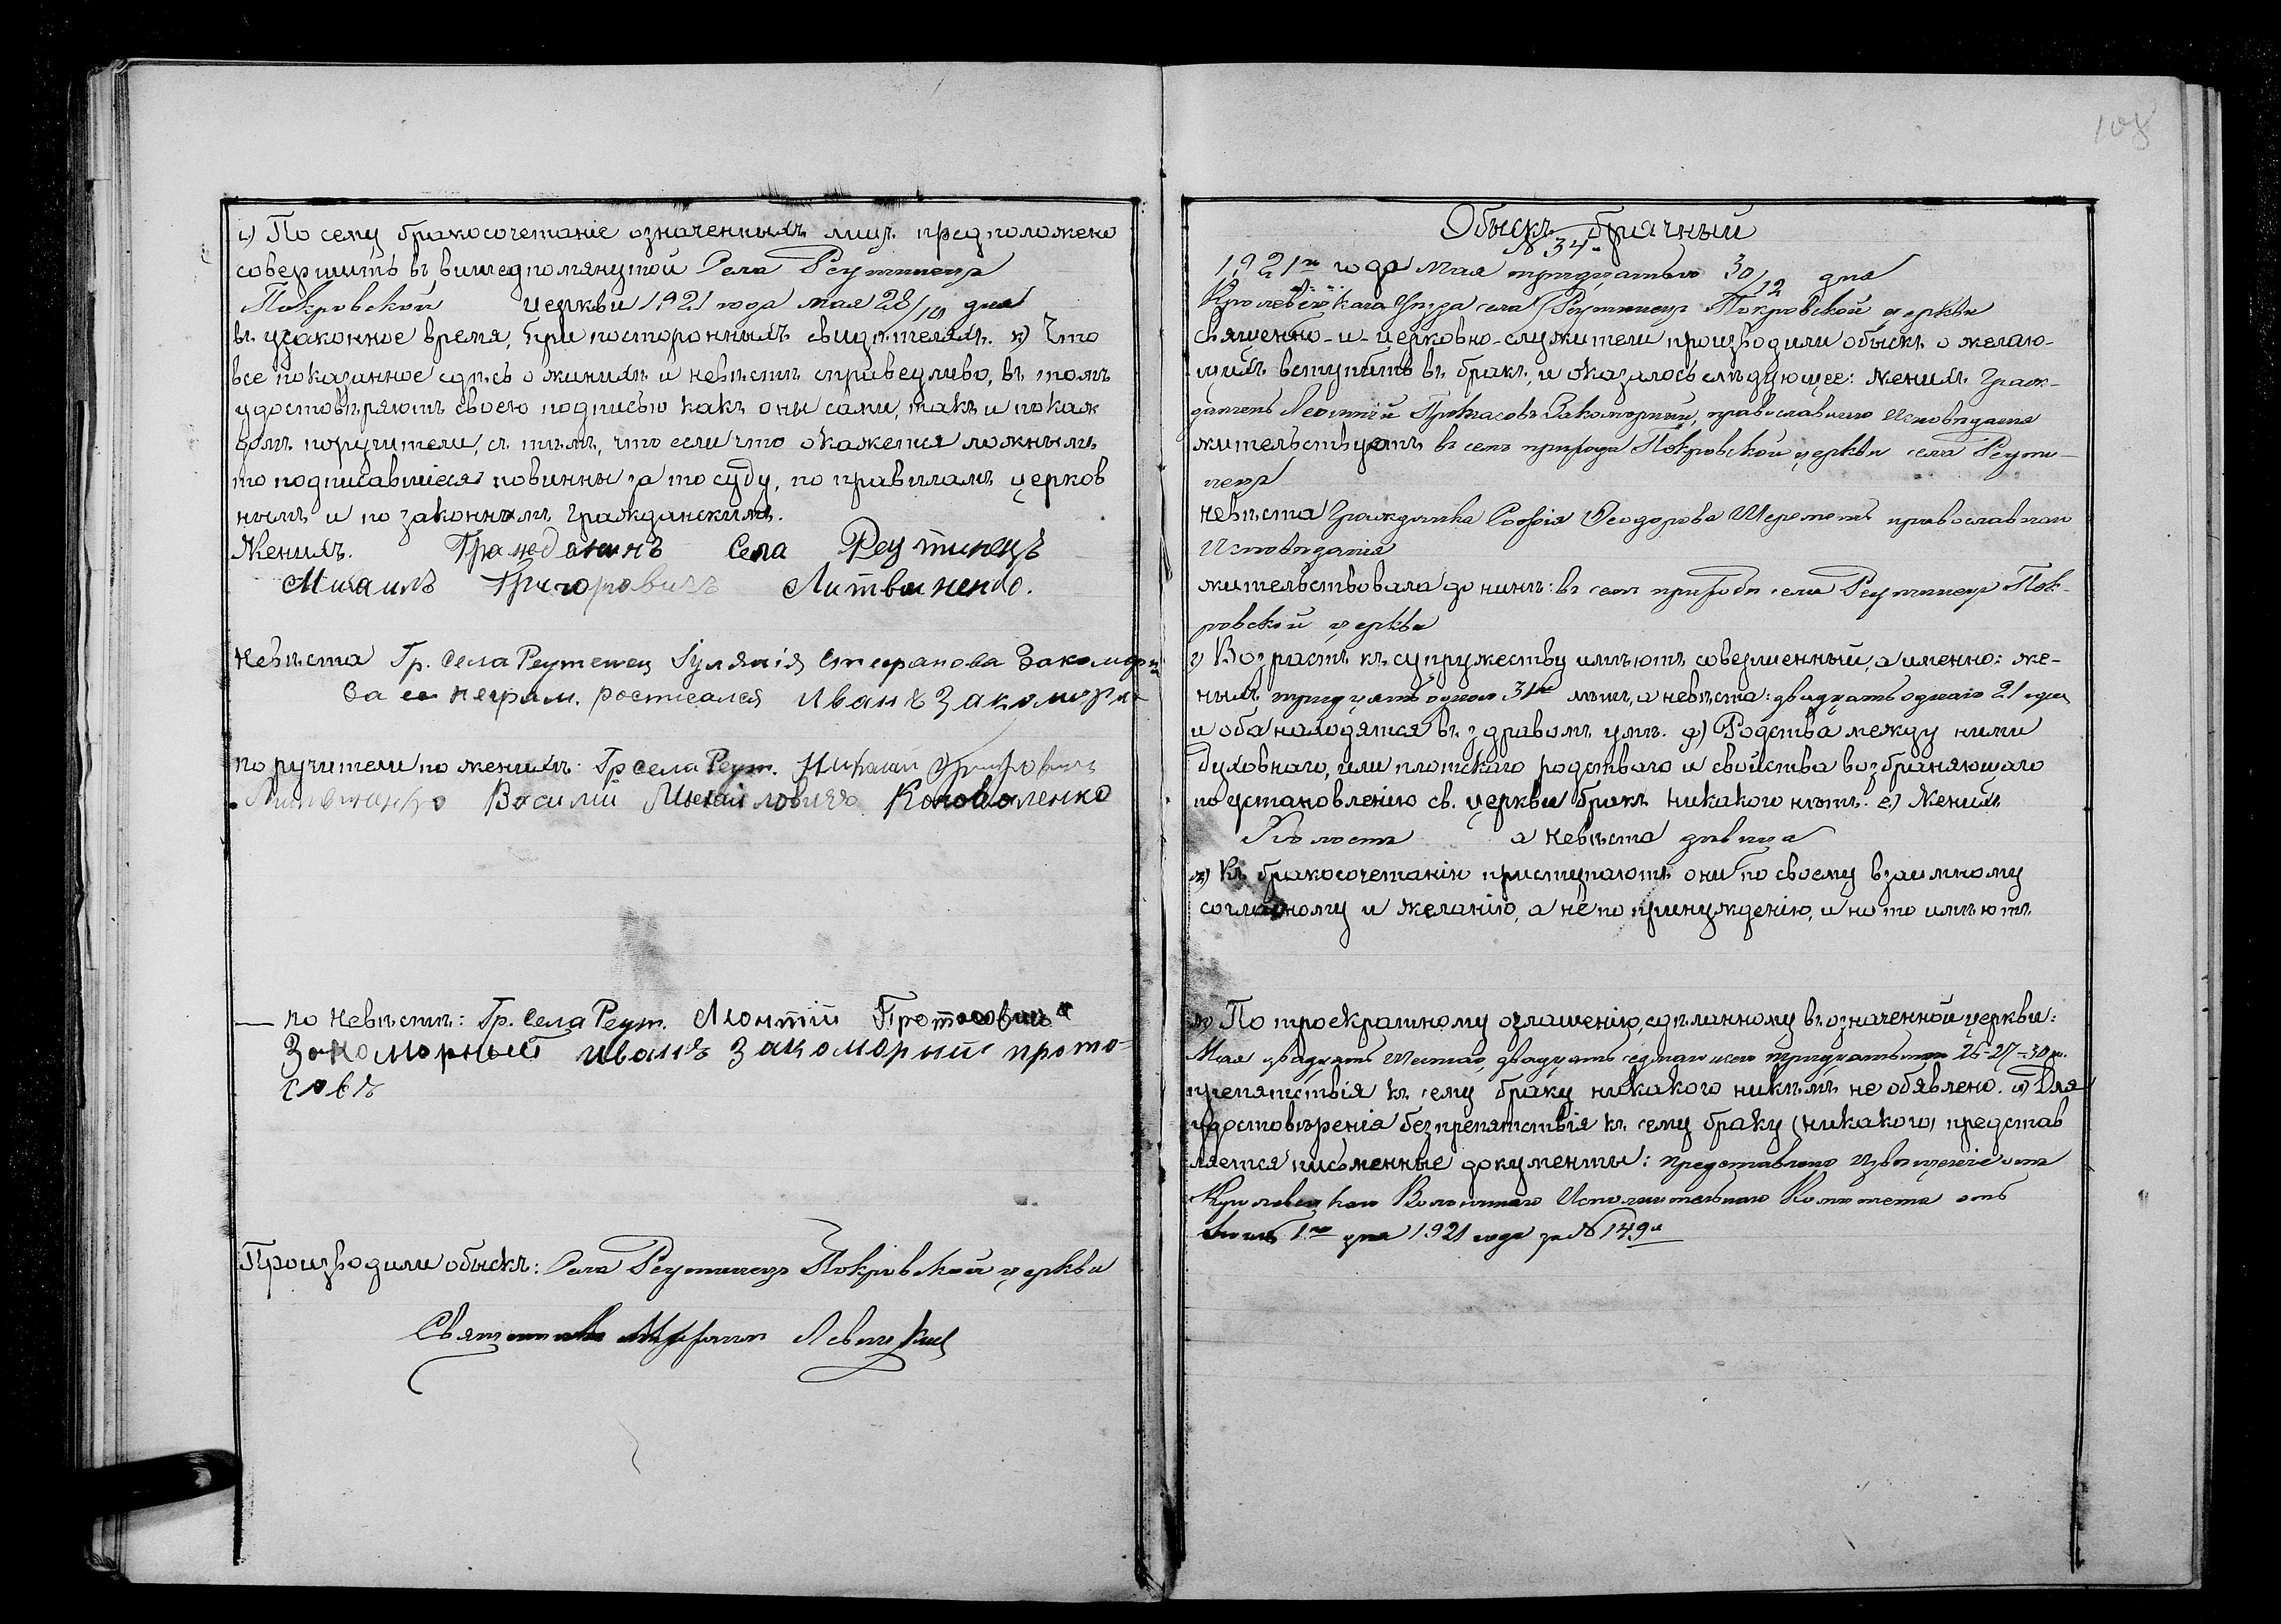 і) По сему бракосочетаніе означенныхъ лицъ предположено
совершить въ вишедпомянутой Села Реутинецъ
Покровской церкви 1921 года мая 28/10 дня
въ узаконное время, при посторонныхъ свидѣтеляхъ. к) Что
все показанное сдѣсь о жинихѣ и невѣстѣ справедливо, въ томъ
удостовѣряютъ своею подписью какъ они сами, такъ и по каж
домъ поручители, съ тѣмъ, что если что окажется ложнымъ
то подписавшіеся повинны за то суду, по правиламъ церков
нымъ и по законнымъ гражданскимъ.
Женихъ. Гражданинъ Села Реутинецъ
Михаилъ Григоровичъ Литвиненко.
Невѣста Гр. Села Реутенец Іуляшія Стефанова Закоморн
За ее неграм. ростисался Иванъ Закоморн
поручители по женихѣ: Гр села Реут. Михаил Григорович
Литвиненко Василий Михайловичъ Коноваленко
по невѣстѣ: Гр. Села Реут. Леонтій Протасовичъ
Закоморный Иванъ Закоморный прота-
совъ
Производили обыскъ: Села Реутинецъ Покровской церкви
Священникъ Левицкий
108
Обыскъ брачный
№ 34.
1921го года Мая тридцатого 30/12 дня
Кролевецкаго Уѣзда села Реутинецъ Покровской церкви
священно-и-церковно-служители производили обыскъ о желаю-
щихъ вступить въ бракъ, и оказалось слѣдующее: женихъ Граж-
данинъ Леонтій Протасовъ Закоморный, православнаго исповѣданія
жительствуетъ въ семъ приходѣ Покровской церкви села Реути-
нецъ
невѣста Гражданка Софія Ѳеодорова Шереметъ православнаго
Исповѣданія
жительствовала до нинѣ: въ семъ приходѣ села Реутинецъ Пок-
ровской церкви
г) Возрастъ къ супружеству имѣютъ совершенный, а именно: же-
нихъ тридцать одного 31го лѣтъ, а невѣста: двадцать одного 21 года
и оба находятся въ здравомъ умѣ. д) Родства между ними
духовнаго, или плотскаго родстваго и свойства возбраняющаго
по установленію св. церкви бракъ никакого нѣтъ. е) Женихъ
Холостъ а невѣста дѣвица
ж) Къ бракосочетанію приступаютъ они по своему взаимному
согласному и желанію, а не по принужденію, и на то имѣютъ
з) По троекратному оглашенію, сдѣланному въ означенной церкви:
Мая двадцать шестаго, двадцать седмаго и тридцатаго 26-27-30 д.
препятствія къ сему браку никакого никѣмъ не обявлено. и) Для
удостовѣренія безпрепятствія къ сему браку (никакого) представ
ляется письменные документы: представлено извѣщеніе отъ
Кролевецкаго Волостнаго Исполнительнаго Комитета отъ
1го дня 1921 года за № 149м